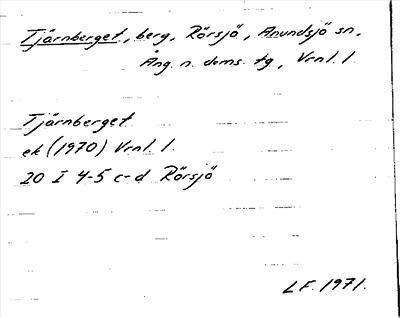 Tjärnberget, berg, Rörsjö, Anundsjö sn,
Ång. n. doms. tg, Vrnl. l.
Tjärnberget
ek (1970) Vrnl. l.
20 I 4-5 c-d Rörsjö
LF. 1971.